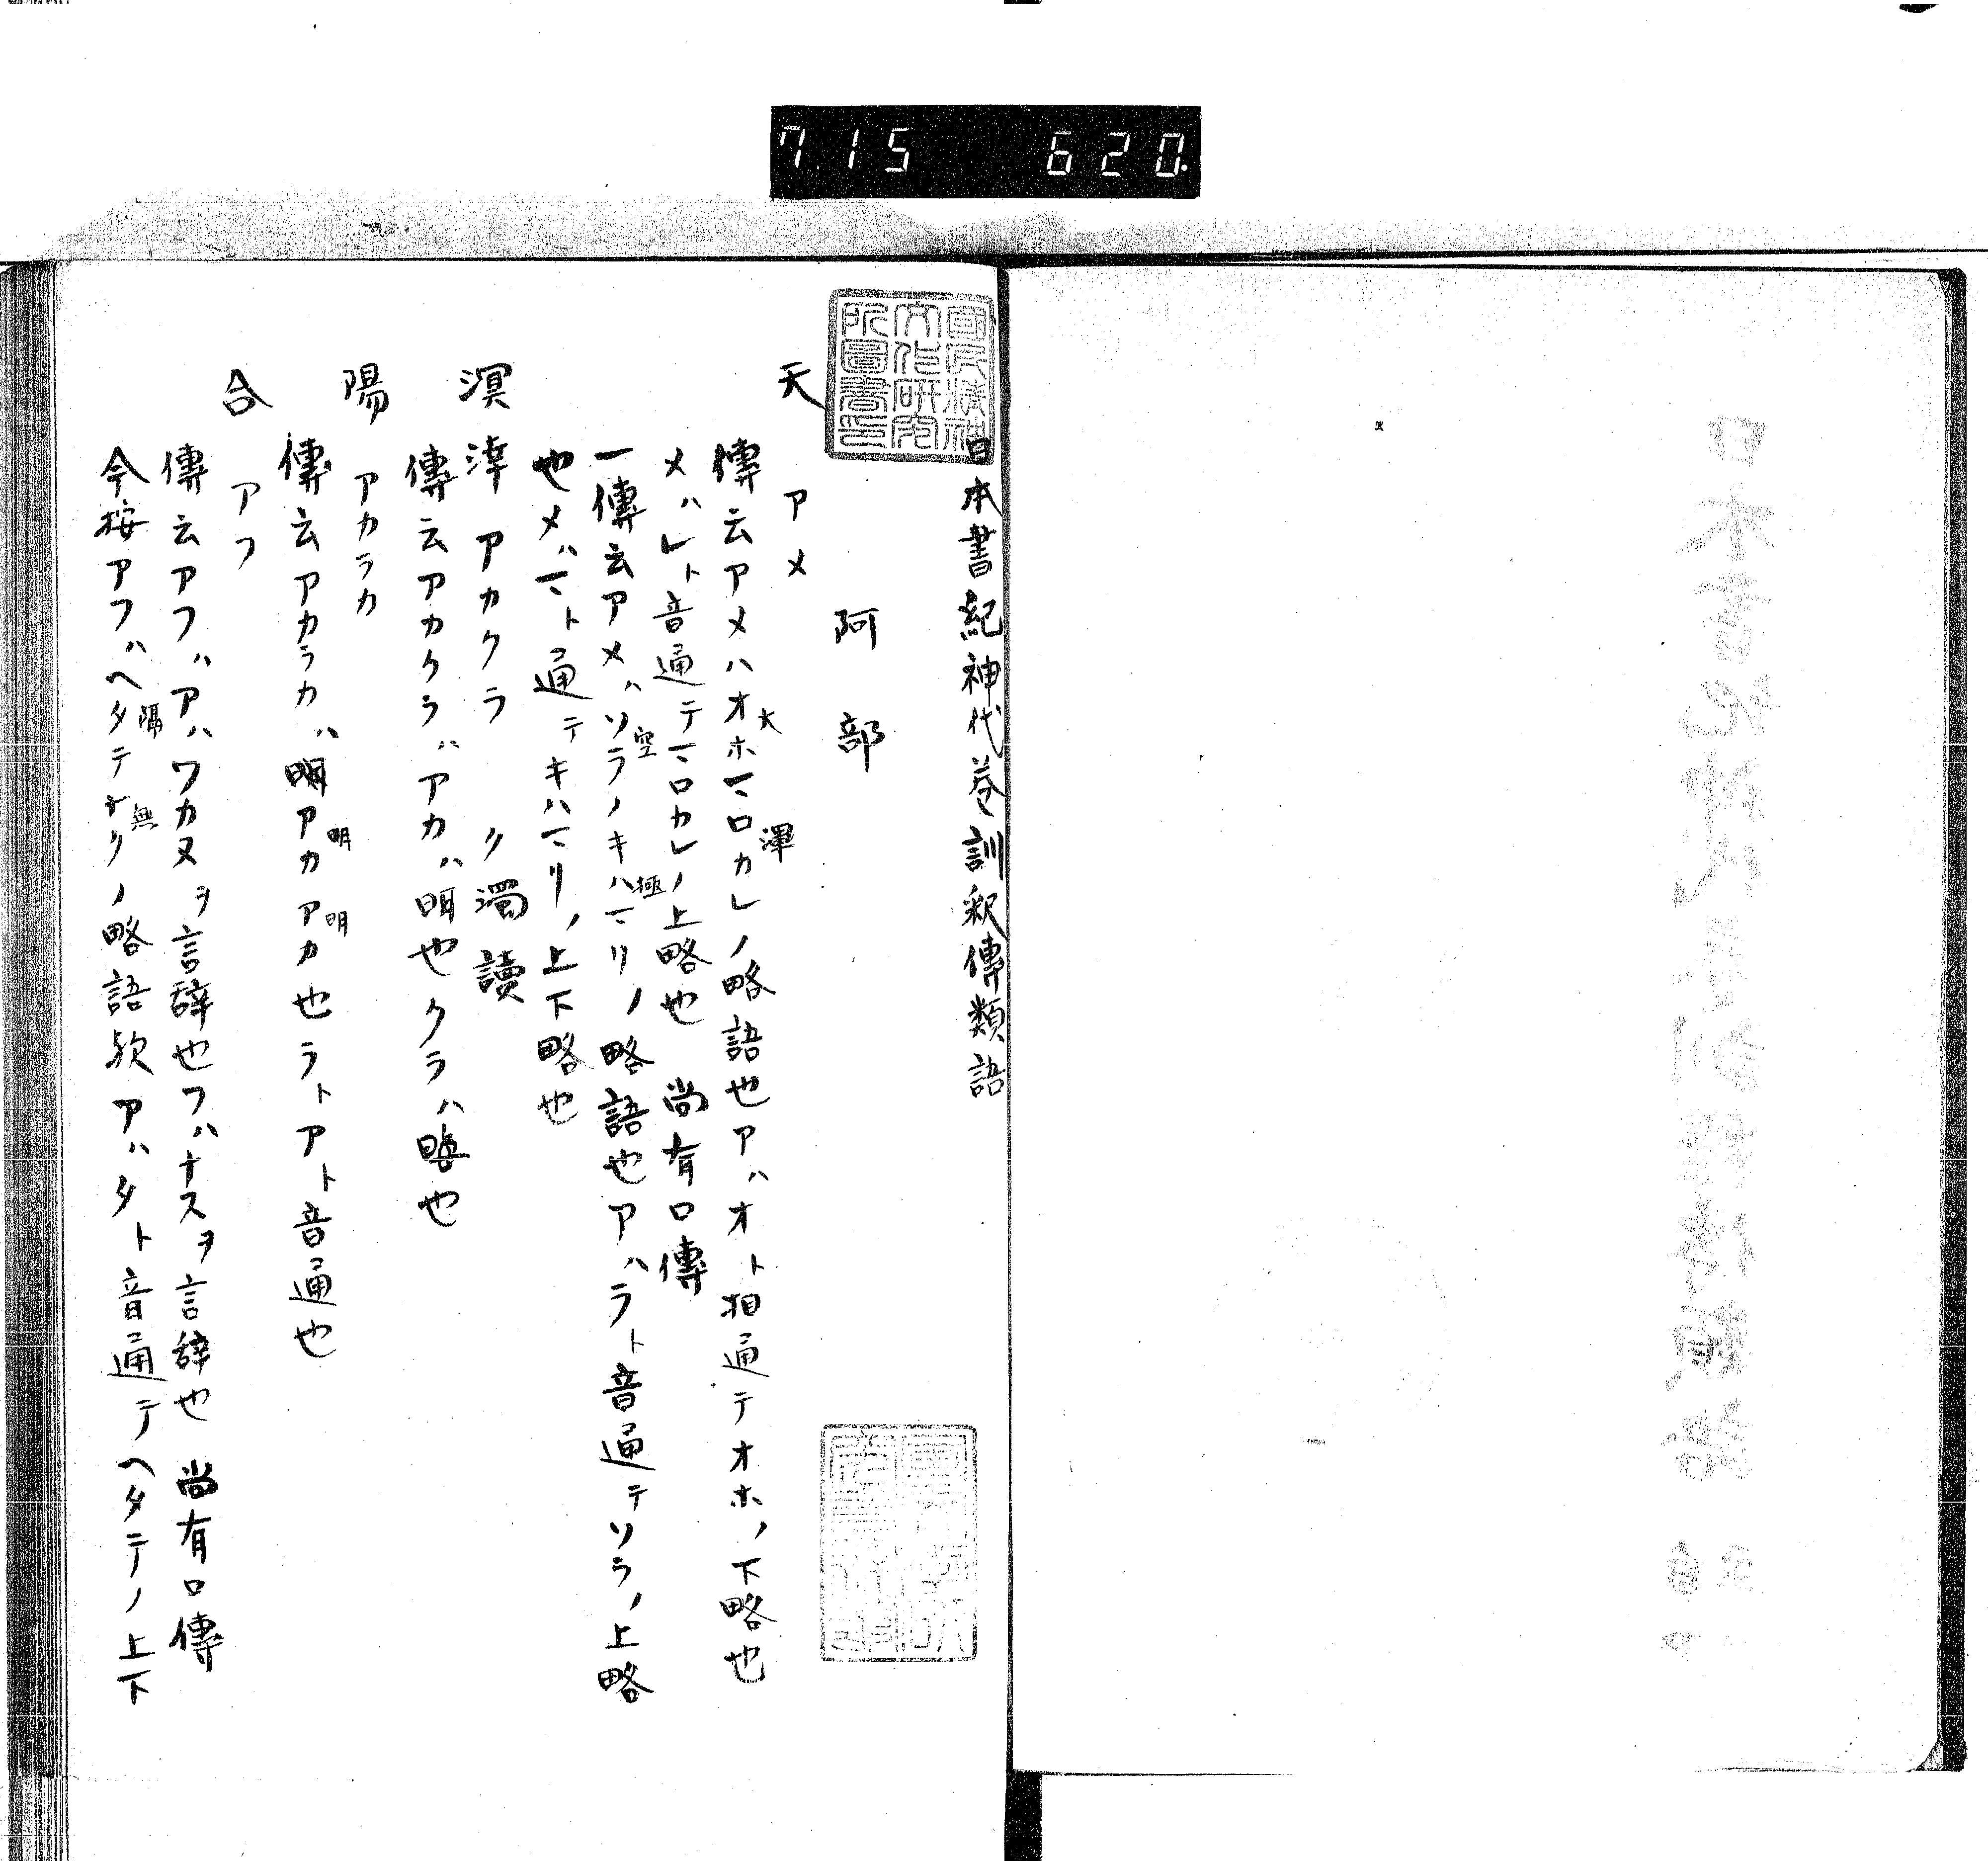 715 620
日本書紀神代巻訓釈傳類語
阿部
天 アメ
傳云アメハオホマロカレノ略語也アハオト相通テオホノ下略也
大 渾
メハレト音通テマロカレノ上略也 尚有口傳
一傳云アメハソラノキハマリノ略語也アハラト音通テソラノ上略
空 極
也メハマト通テキハマリノ上下略也
溟涬 アカクラ ク濁讀
傳云アカクラハアカハ明也クラハ晦也
陽 アカラカ
傳云アカラカハ明アカアカ也ラトアト音通也
明 明
合 アフ
傳云アフハアハワカヌヲ言辞也フハナスヲ言辞也 尚有口傳
今按アフハヘタテナクノ略語歟アハタト音通テヘタテノ上下
隔 無